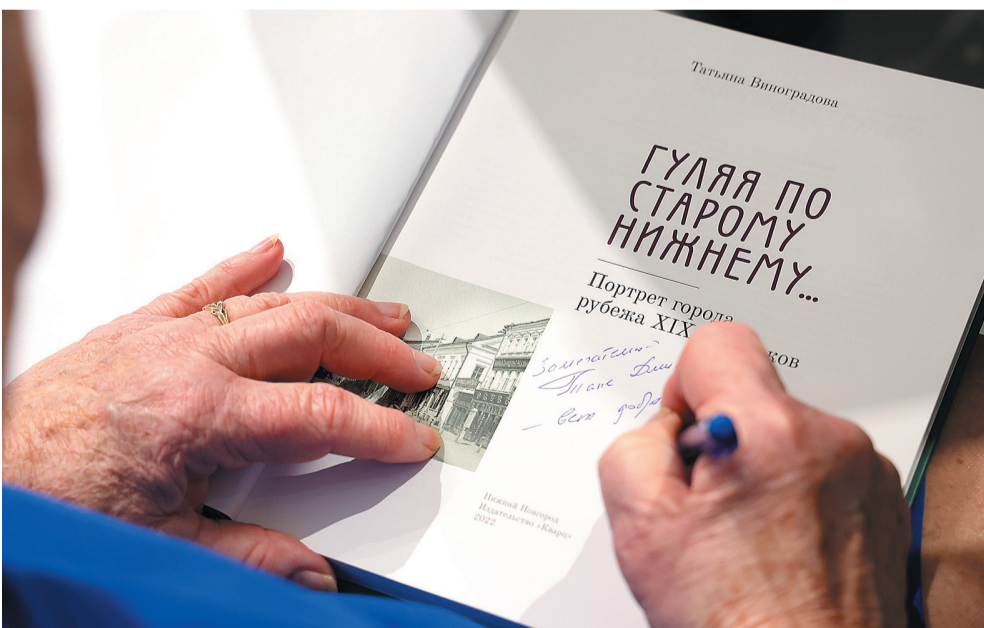 Татьяна Виноградова
ГУЛЯЯ ПО
СТАРОМУ
НИЖНЕМУ...
Портрет города
рубежа XIX
Тане
всего
Нижний Новгород
Издательство «Кварц»
2022